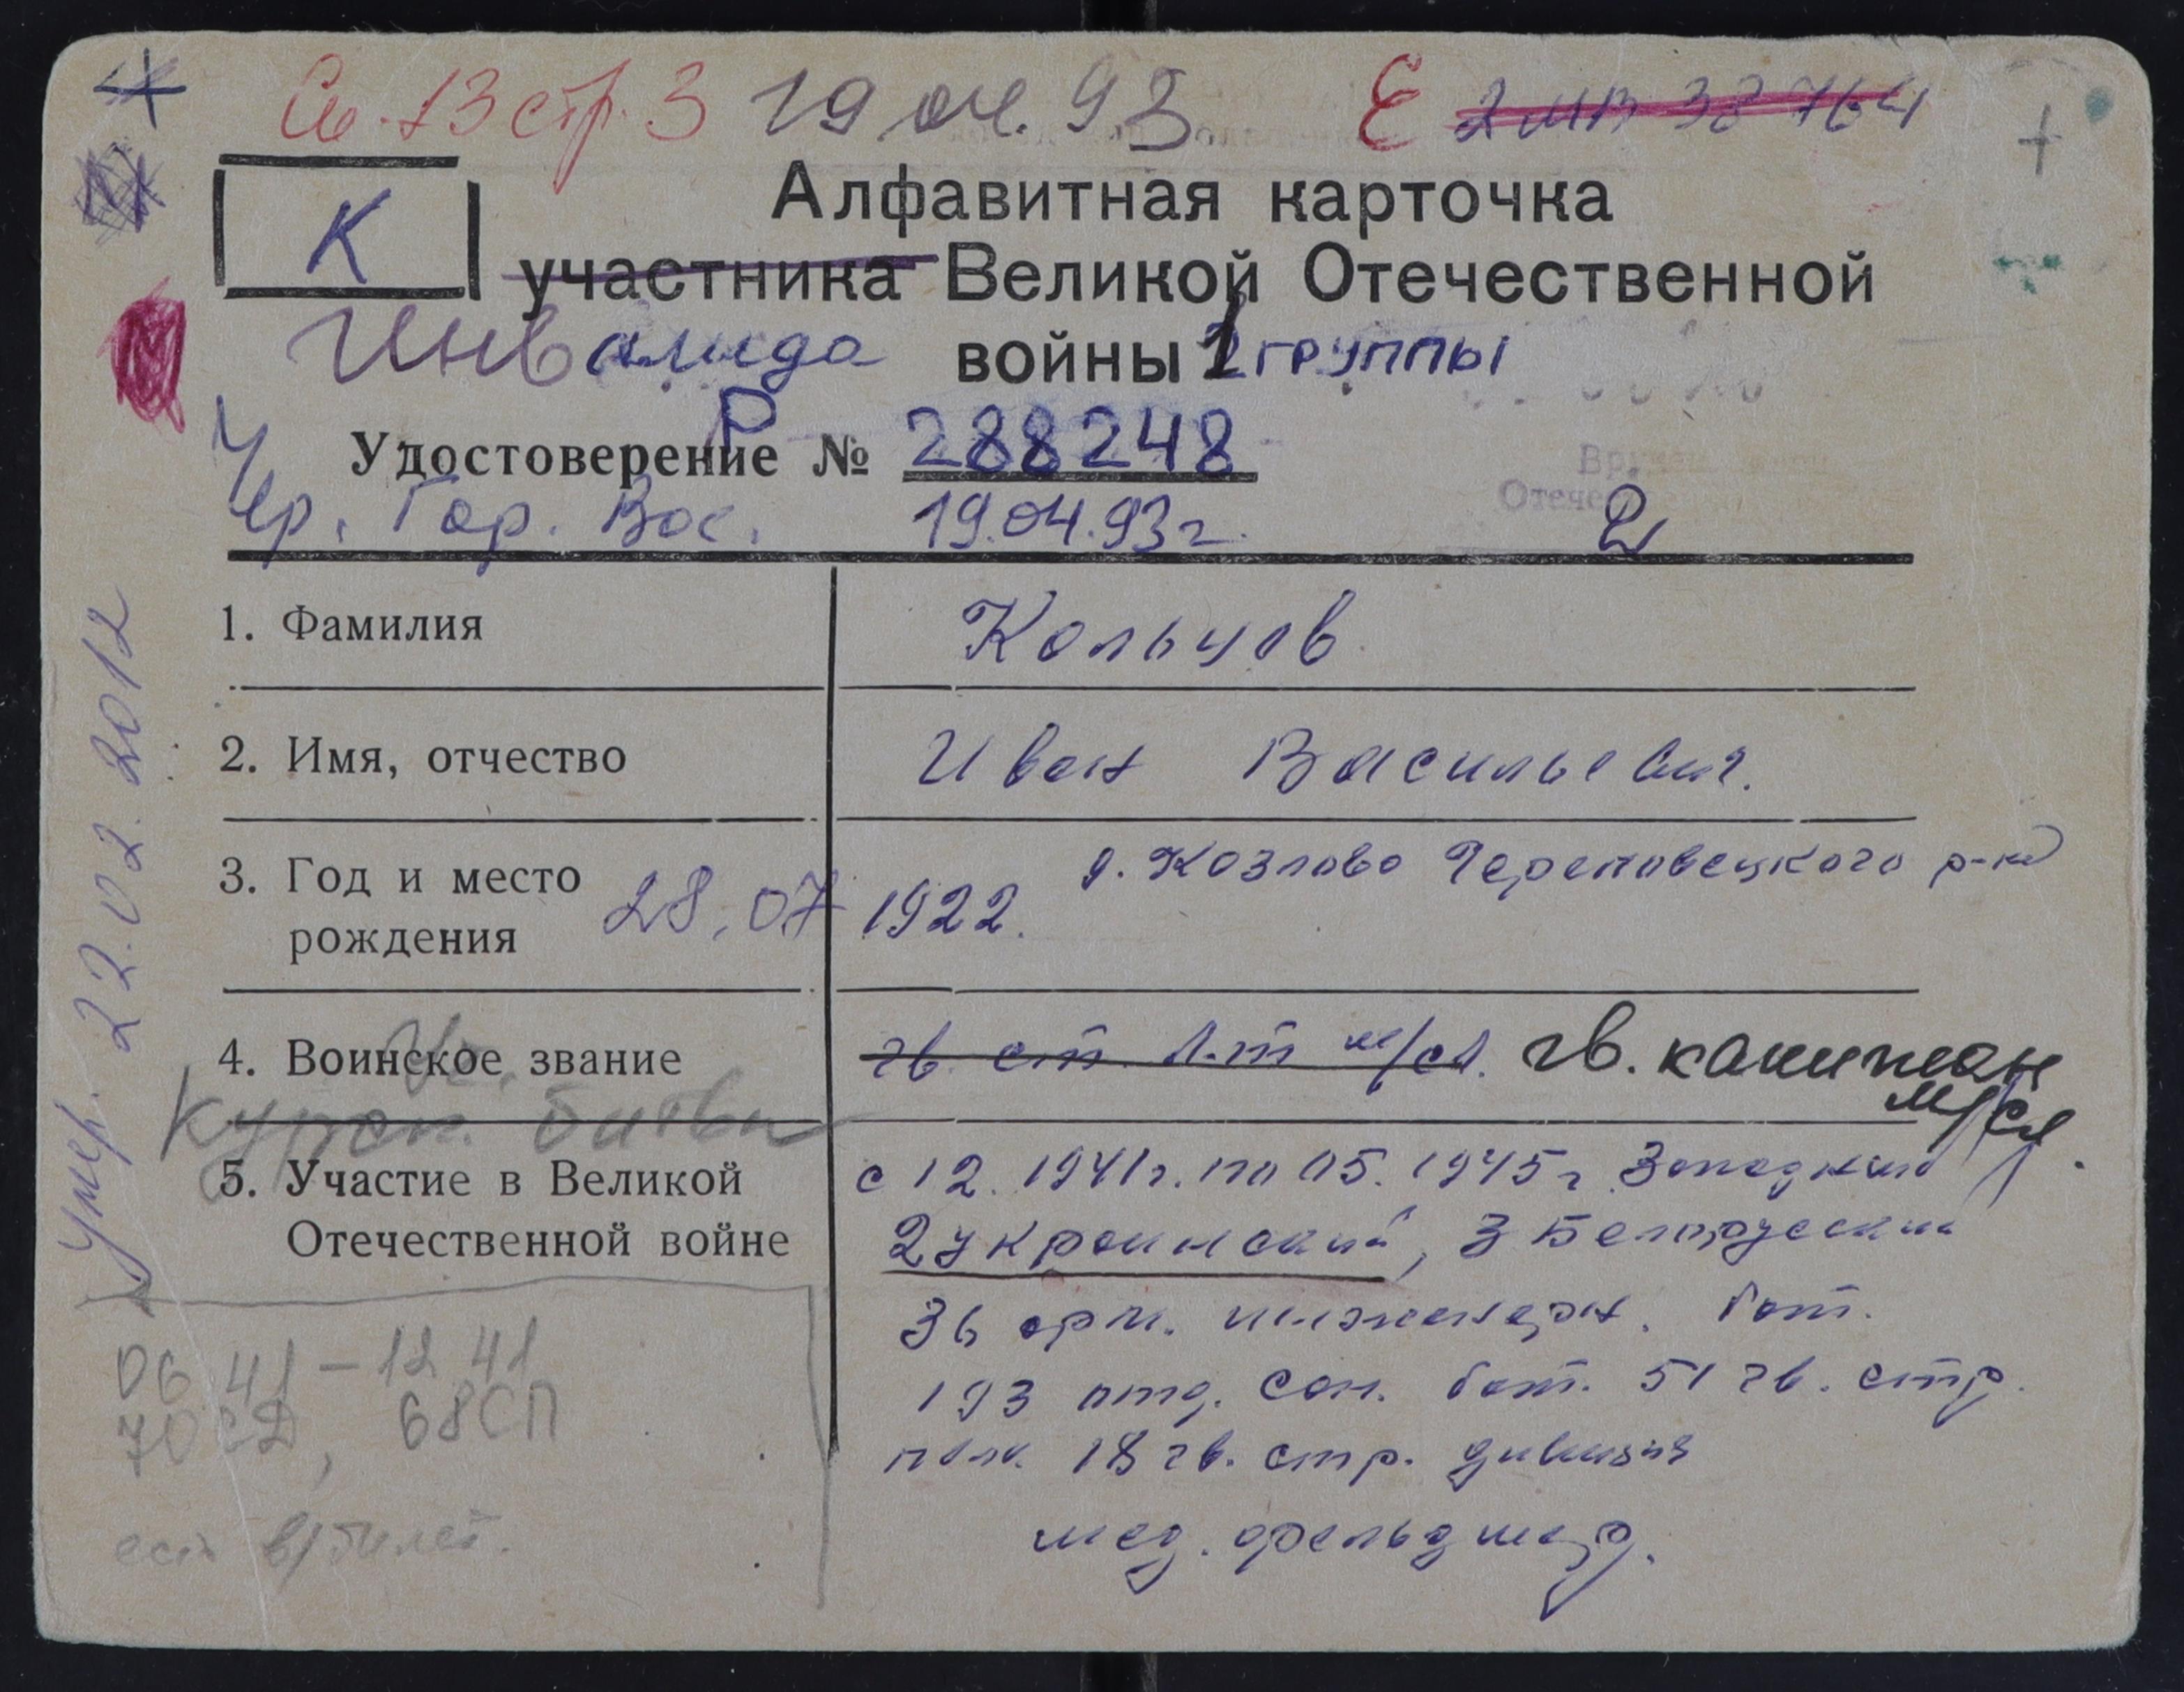 стр. 3 19 04. 93 Е 2 МВ 38 764
К
Алфавитная карточка
участника Великой Отечественной
Инвалида войны 1 группы
Р
Удостоверение № 288248
Чер. Гор. Вос. 19.04.93г. 2
1. Фамилия Кольцов
2. Имя, отчество Иван Васильевич.
3. Год и место рождения 28.07 1922. д. Козлово Череповецкого р-на
4. Воинское звание гв. ст. л-т м/сл. гв. капитан м/сл.
Курск. битва
5. Участие в Великой Отечественной войне
с 12. 1941г. по 05. 1945г Западный
2 украинский, 3 Белорусский
36 арм. инженерн. бат.
193 отд. сап. бат. 51 гв. стр.
полк 18 гв. стр. дивизия
мед. фельдшер.
06 41 – 12 41
70 СД, 68 СП
есть в/билет.
Умер. 22.02.2012